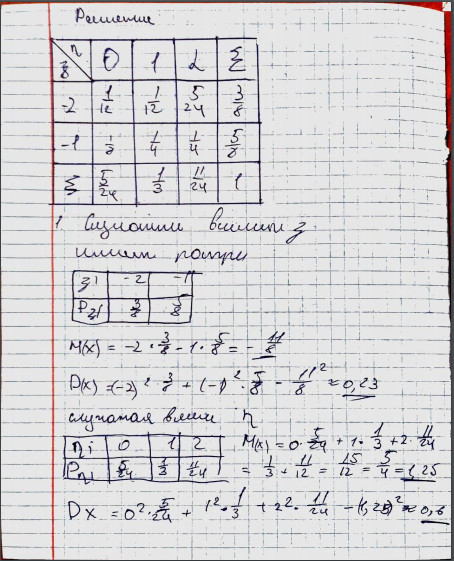 Решение
ξ η 0 1 2 Σ
-2 1/12 1/12 5/24 3/8
-1 1/8 1/4 1/4 5/8
Σ 5/24 1/3 11/24 1
1. ξ
имеет
ξi -2 -1
Pξi 3/8 5/8
M(x) = -2 · 3/8 - 1 · 5/8 = - 11/8
D(x) = (-2)² · 3/8 + (-1)² · 5/8 - 11/8 ² ≈ 0,23
η
ηi 0 1 2
Pηi 5/24 1/3 11/24
M(x) = 0 · 5/24 + 1 · 1/3 + 2 · 11/24
= 1/3 + 11/12 = 15/12 = 5/4 = 1,25
Dx = 0² · 5/24 + 1² · 1/3 + 2² · 11/24 - (1,25)² ≈ 0,6